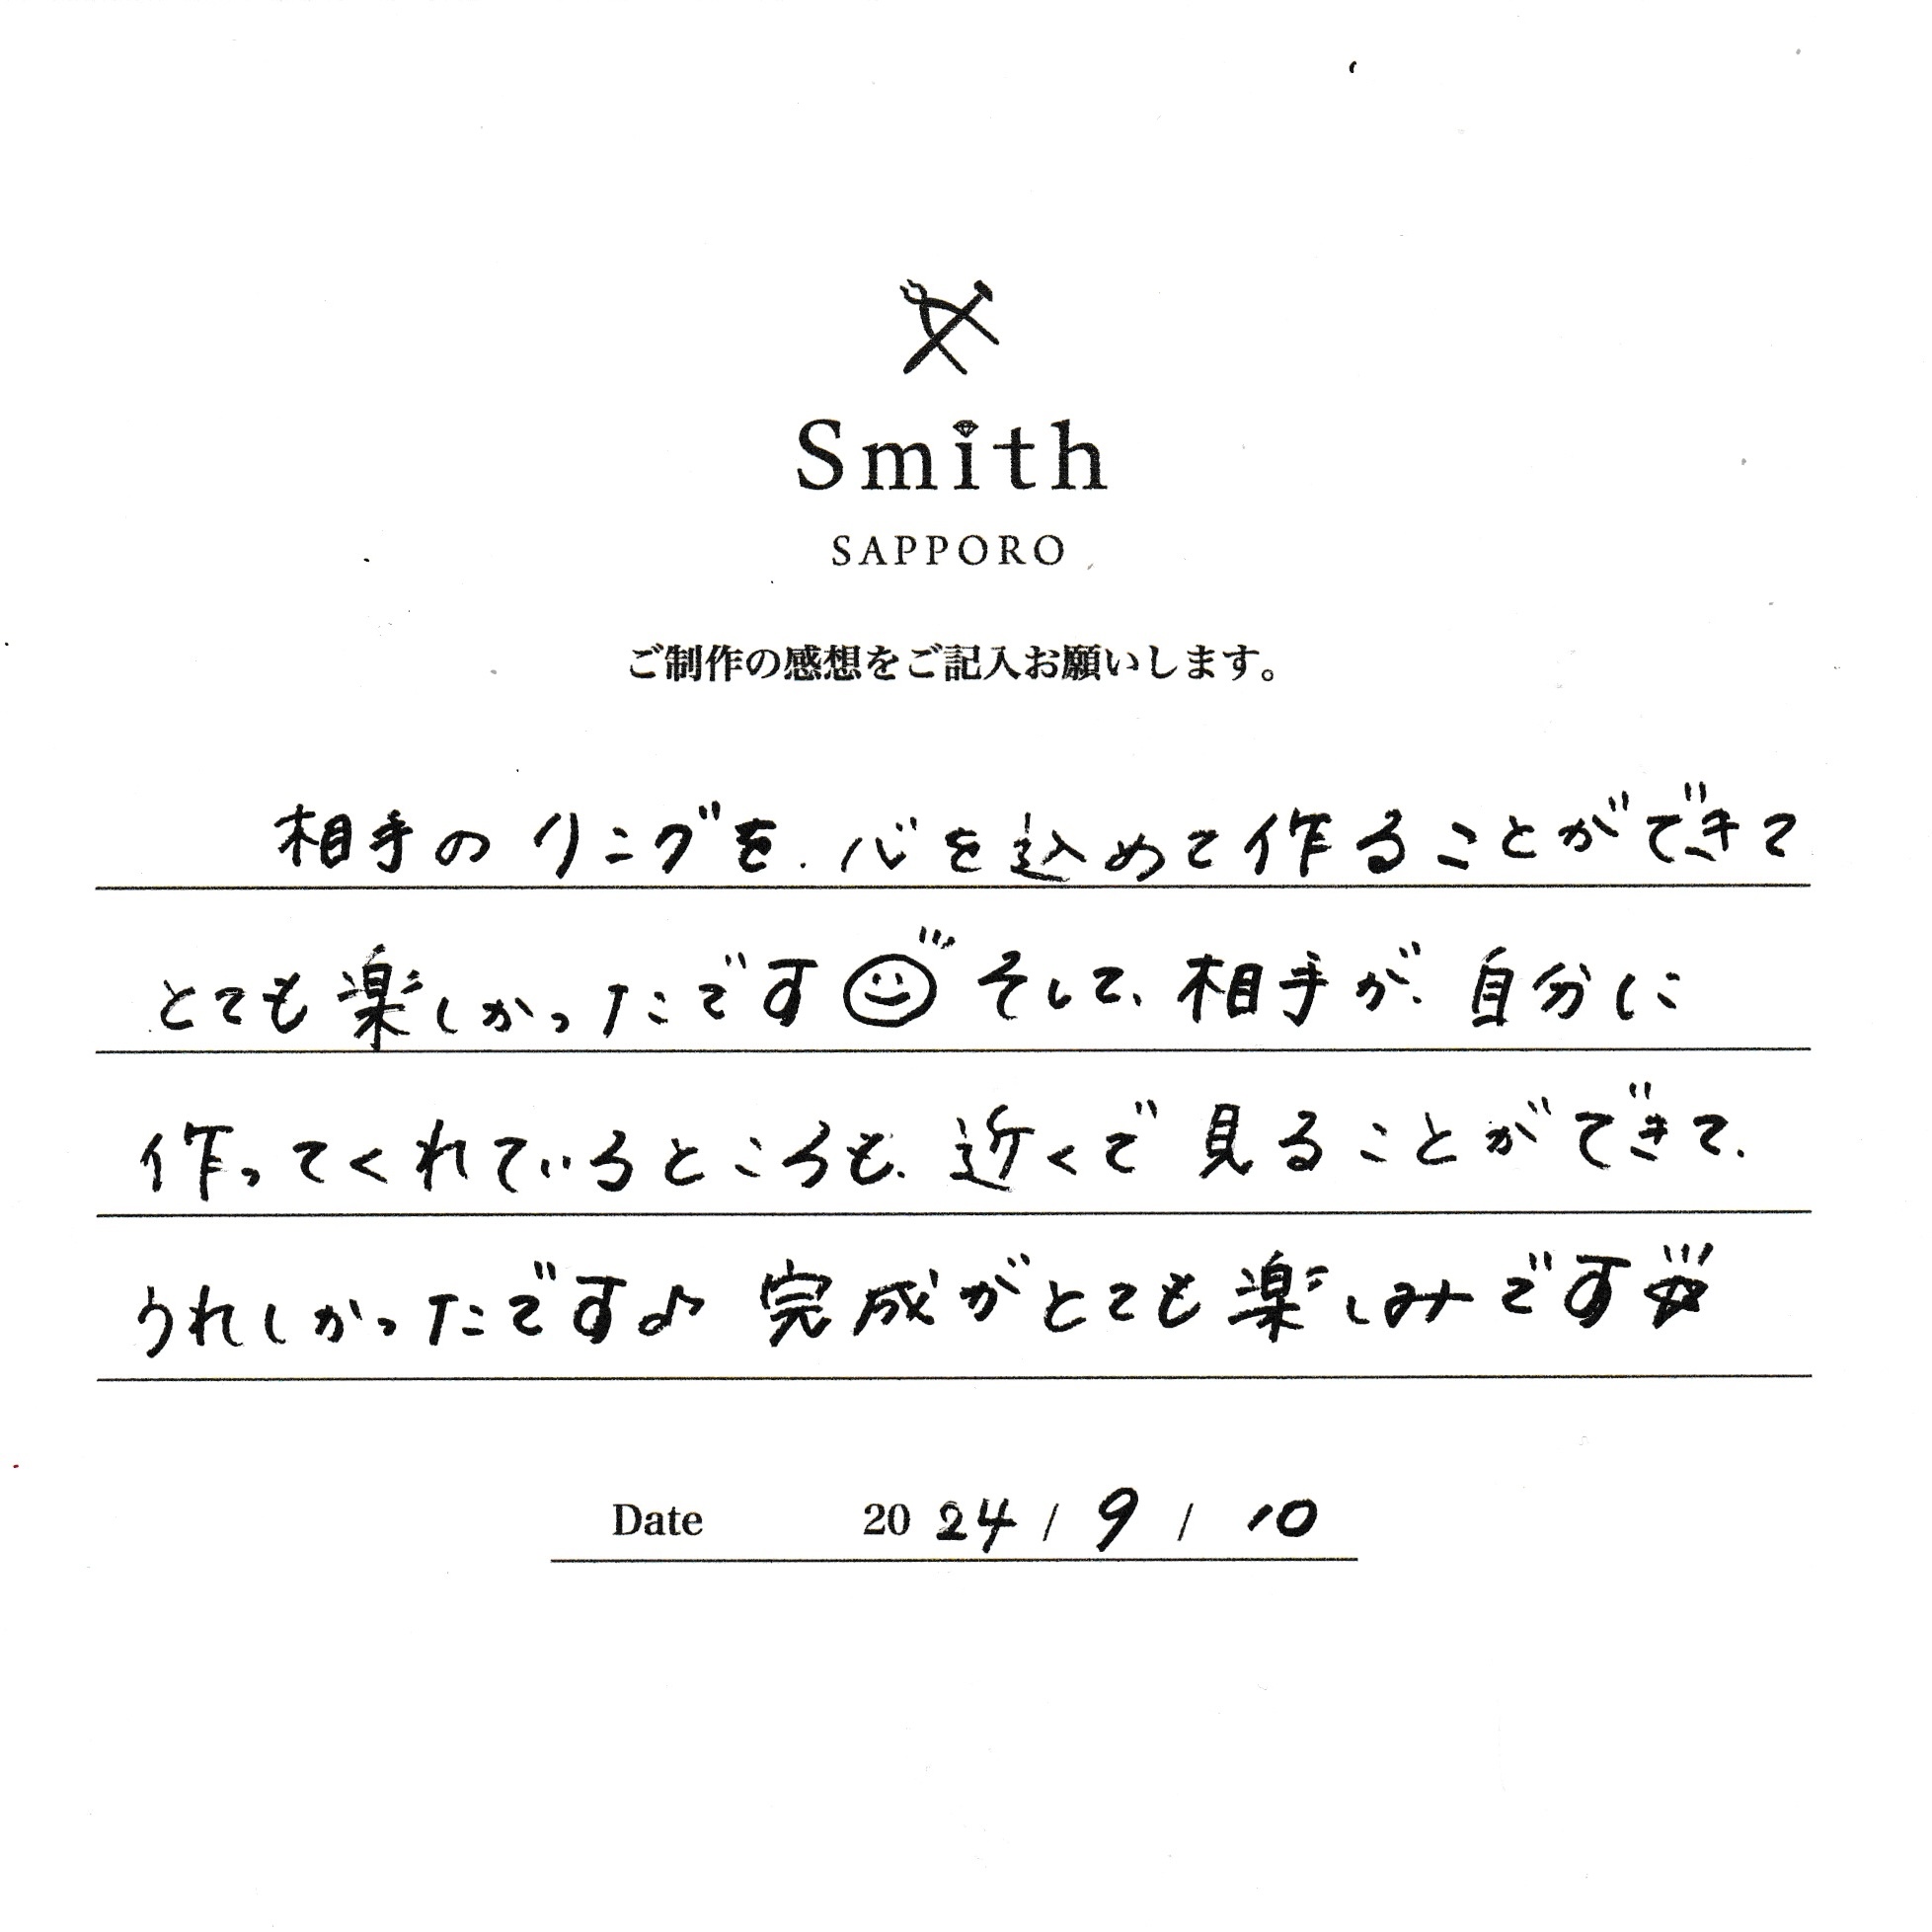 Smith
SAPPORO
ご制作の感想をご記入お願いします。
相手のリングを、心を込めて作ることができて
とても楽しかったです☺そして、相手が、自分に
作ってくれているところも、近くで見ることができて、
うれしかったです♪完成がとても楽しみです☆
Date 2024 / 9 / 10